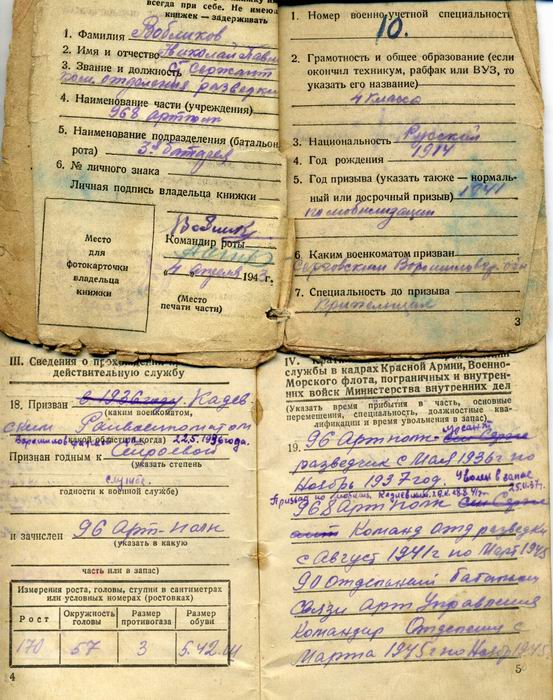 всегда при себе. Не имею
книжек — задерживать
1. Фамилия Вобликов
2. Имя и отчество Николай Павл
3. Звание и должность Ст сержант
ком. отделения разведки
4. Наименование части (учреждения)
968 артполк
5. Наименование подразделения (батальон
рота) 3я батарея
6. № личного знака
Личная подпись владельца книжки
Место
для
фотокарточки
владельца
книжки
Командир роты
„4" апреля 1943г.
(Место
печати части)
1. Номер военно-учетной специальност
10.
2. Грамотность и общее образование (если
окончил техникум, рабфак или ВУЗ, то
указать его название)
4 класса
3. Национальность Русский
4. Год рождения 1914
5. Год призыва (указать также — нормаль-
ный или досрочный призыв) 1941
по мобилизации
6. Каким военкоматом призван
Ворошиловгр.
7. Специальность до призыва
3
III. Сведения о прохождении
действительную службу
18. Призван в 1936 году. Кадев
(каким военкоматом,
ским Райвоенкоматом
Ворошиловград (какой области и когда) 22.5.1936 года.
Признан годным к Строевой
(указать степень
службе.
годности к военной службе)
и зачислен 96 Арт-полк
(указать в какую
часть или в запас)
Измерения роста, головы, ступни в сантиметрах
или условных номерах (ростовках)
Рост Окружность головы Размер противогаза Размер обуви
170 57 3 5.42.Ш
4
IV.
службы в кадрах Красной Армии, Военно-
Морского флота, пограничных и внутрен-
них войск Министерства внутренних дел
(Указать время прибытия в часть, основные
перемещения, специальность, должностные ква-
лификации и время увольнения в запас)
19. 96 Артполк
разведчик с Мая 1936г по
Ноябрь 1937 год. Уволен в запас
25.11.37г.
Призван по мобилиз. Кадиевским
968 арт полк
Команд отд разведки
с Август 1941г по Март 1945
90 Отдельный батальон
связи Арт Управления
Командир Отделения с
Марта 1945г по Ноябр 1945
5